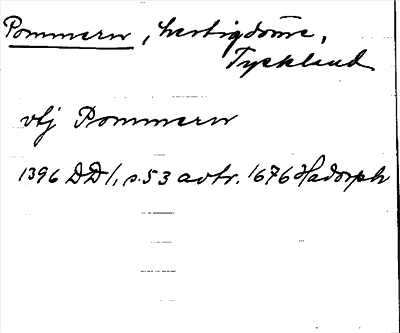 Pommern, hertigdöme,
Tyskland
vtj Pommern
1396 DD1, s. 53 avtr. 1676 Hadorph